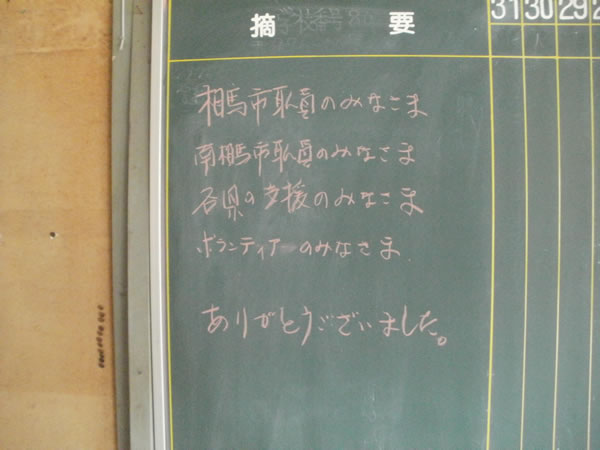 摘 要 31 30 29
相馬市職員のみなさま
南相馬市職員のみなさま
各県の支援のみなさま
ボランティアーのみなさま
ありがとうございました。